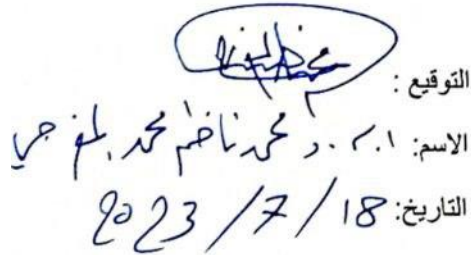 التوقيع :
الاسم: ا.م.د. محمد ناظم محمد المفرجي
التاريخ: 18 / 7 / 2023